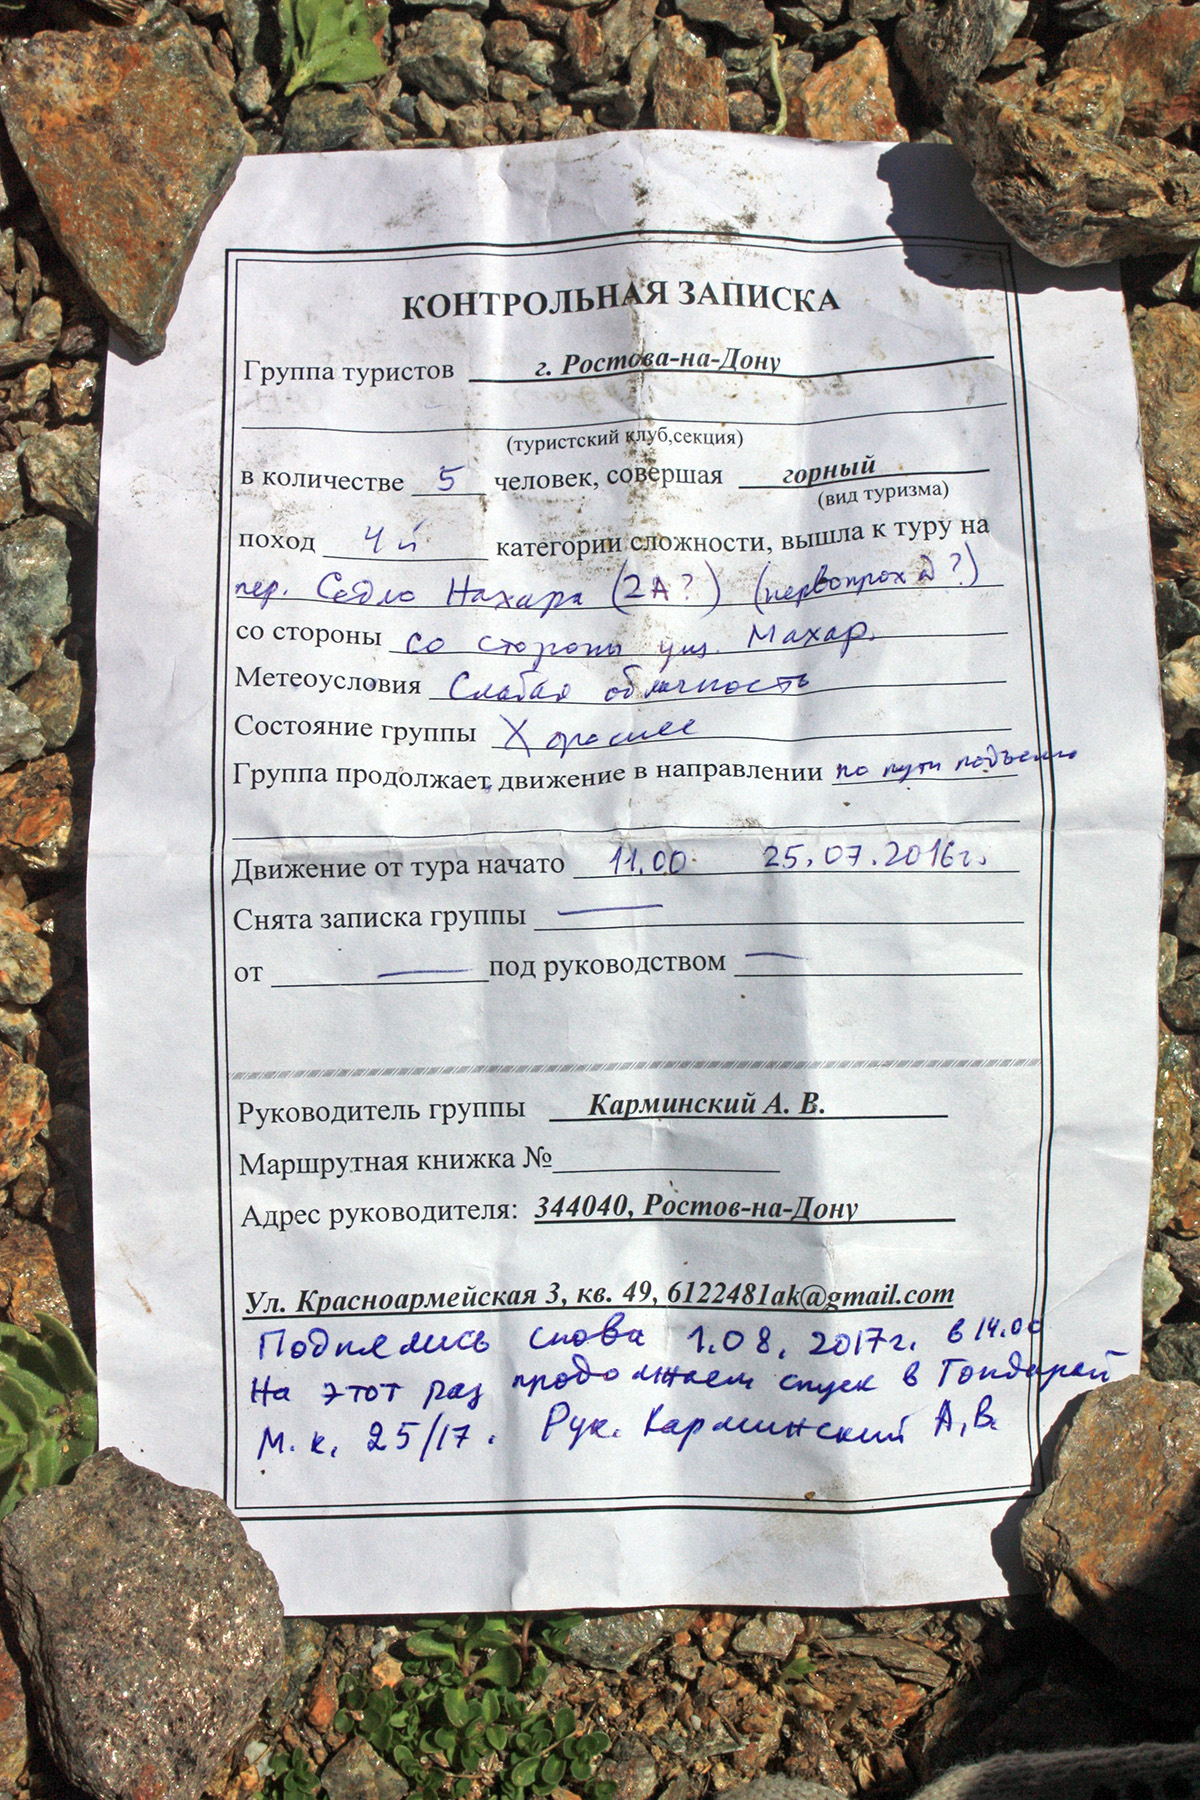 КОНТРОЛЬНАЯ ЗАПИСКА
Группа туристов г. Ростова-на-Дону
(туристский клуб,секция)
в количестве 5 человек, совершая горный
(вид туризма)
поход 4й категории сложности, вышла к туру на
пер. Седло Нахара (2А?) (первопроход?)
со стороны со стороны ущ. Махар.
Метеоусловия Слабая облачность
Состояние группы Хорошее
Группа продолжает движение в направлении по пути подъема
Движение от тура начато 11.00 25.07.2016г.
Снята записка группы —
от — под руководством —
Руководитель группы Карминский А. В.
Маршрутная книжка №
Адрес руководителя: 344040, Ростов-на-Дону
Ул. Красноармейская 3, кв. 49, 6122481ak@gmail.com
Поднялись снова 1.08.2017г. в 14.00
На этот раз продолжаем спуск в Гондарай
М.к. 25/17. Рук. Карминский А.В.